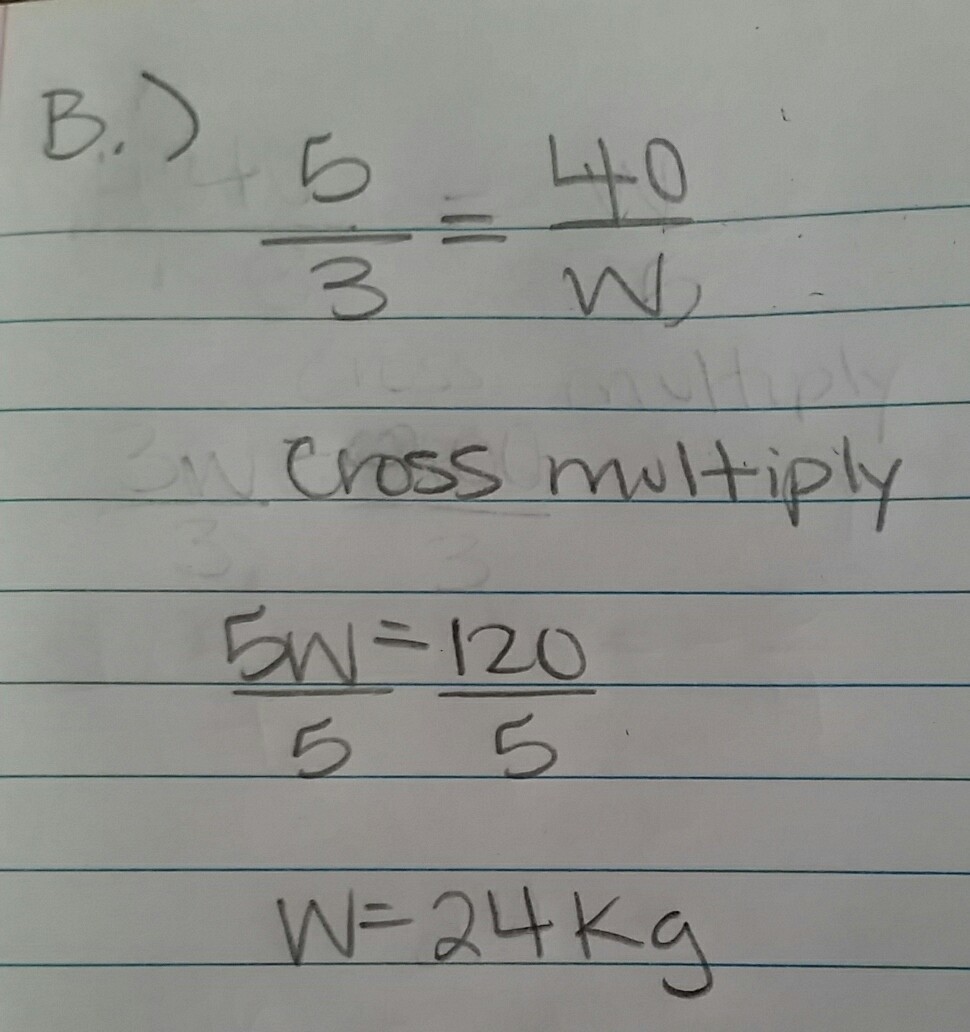 B.)
5 = 40
3 W
cross multiply
5W = 120
5 5
W = 24 Kg